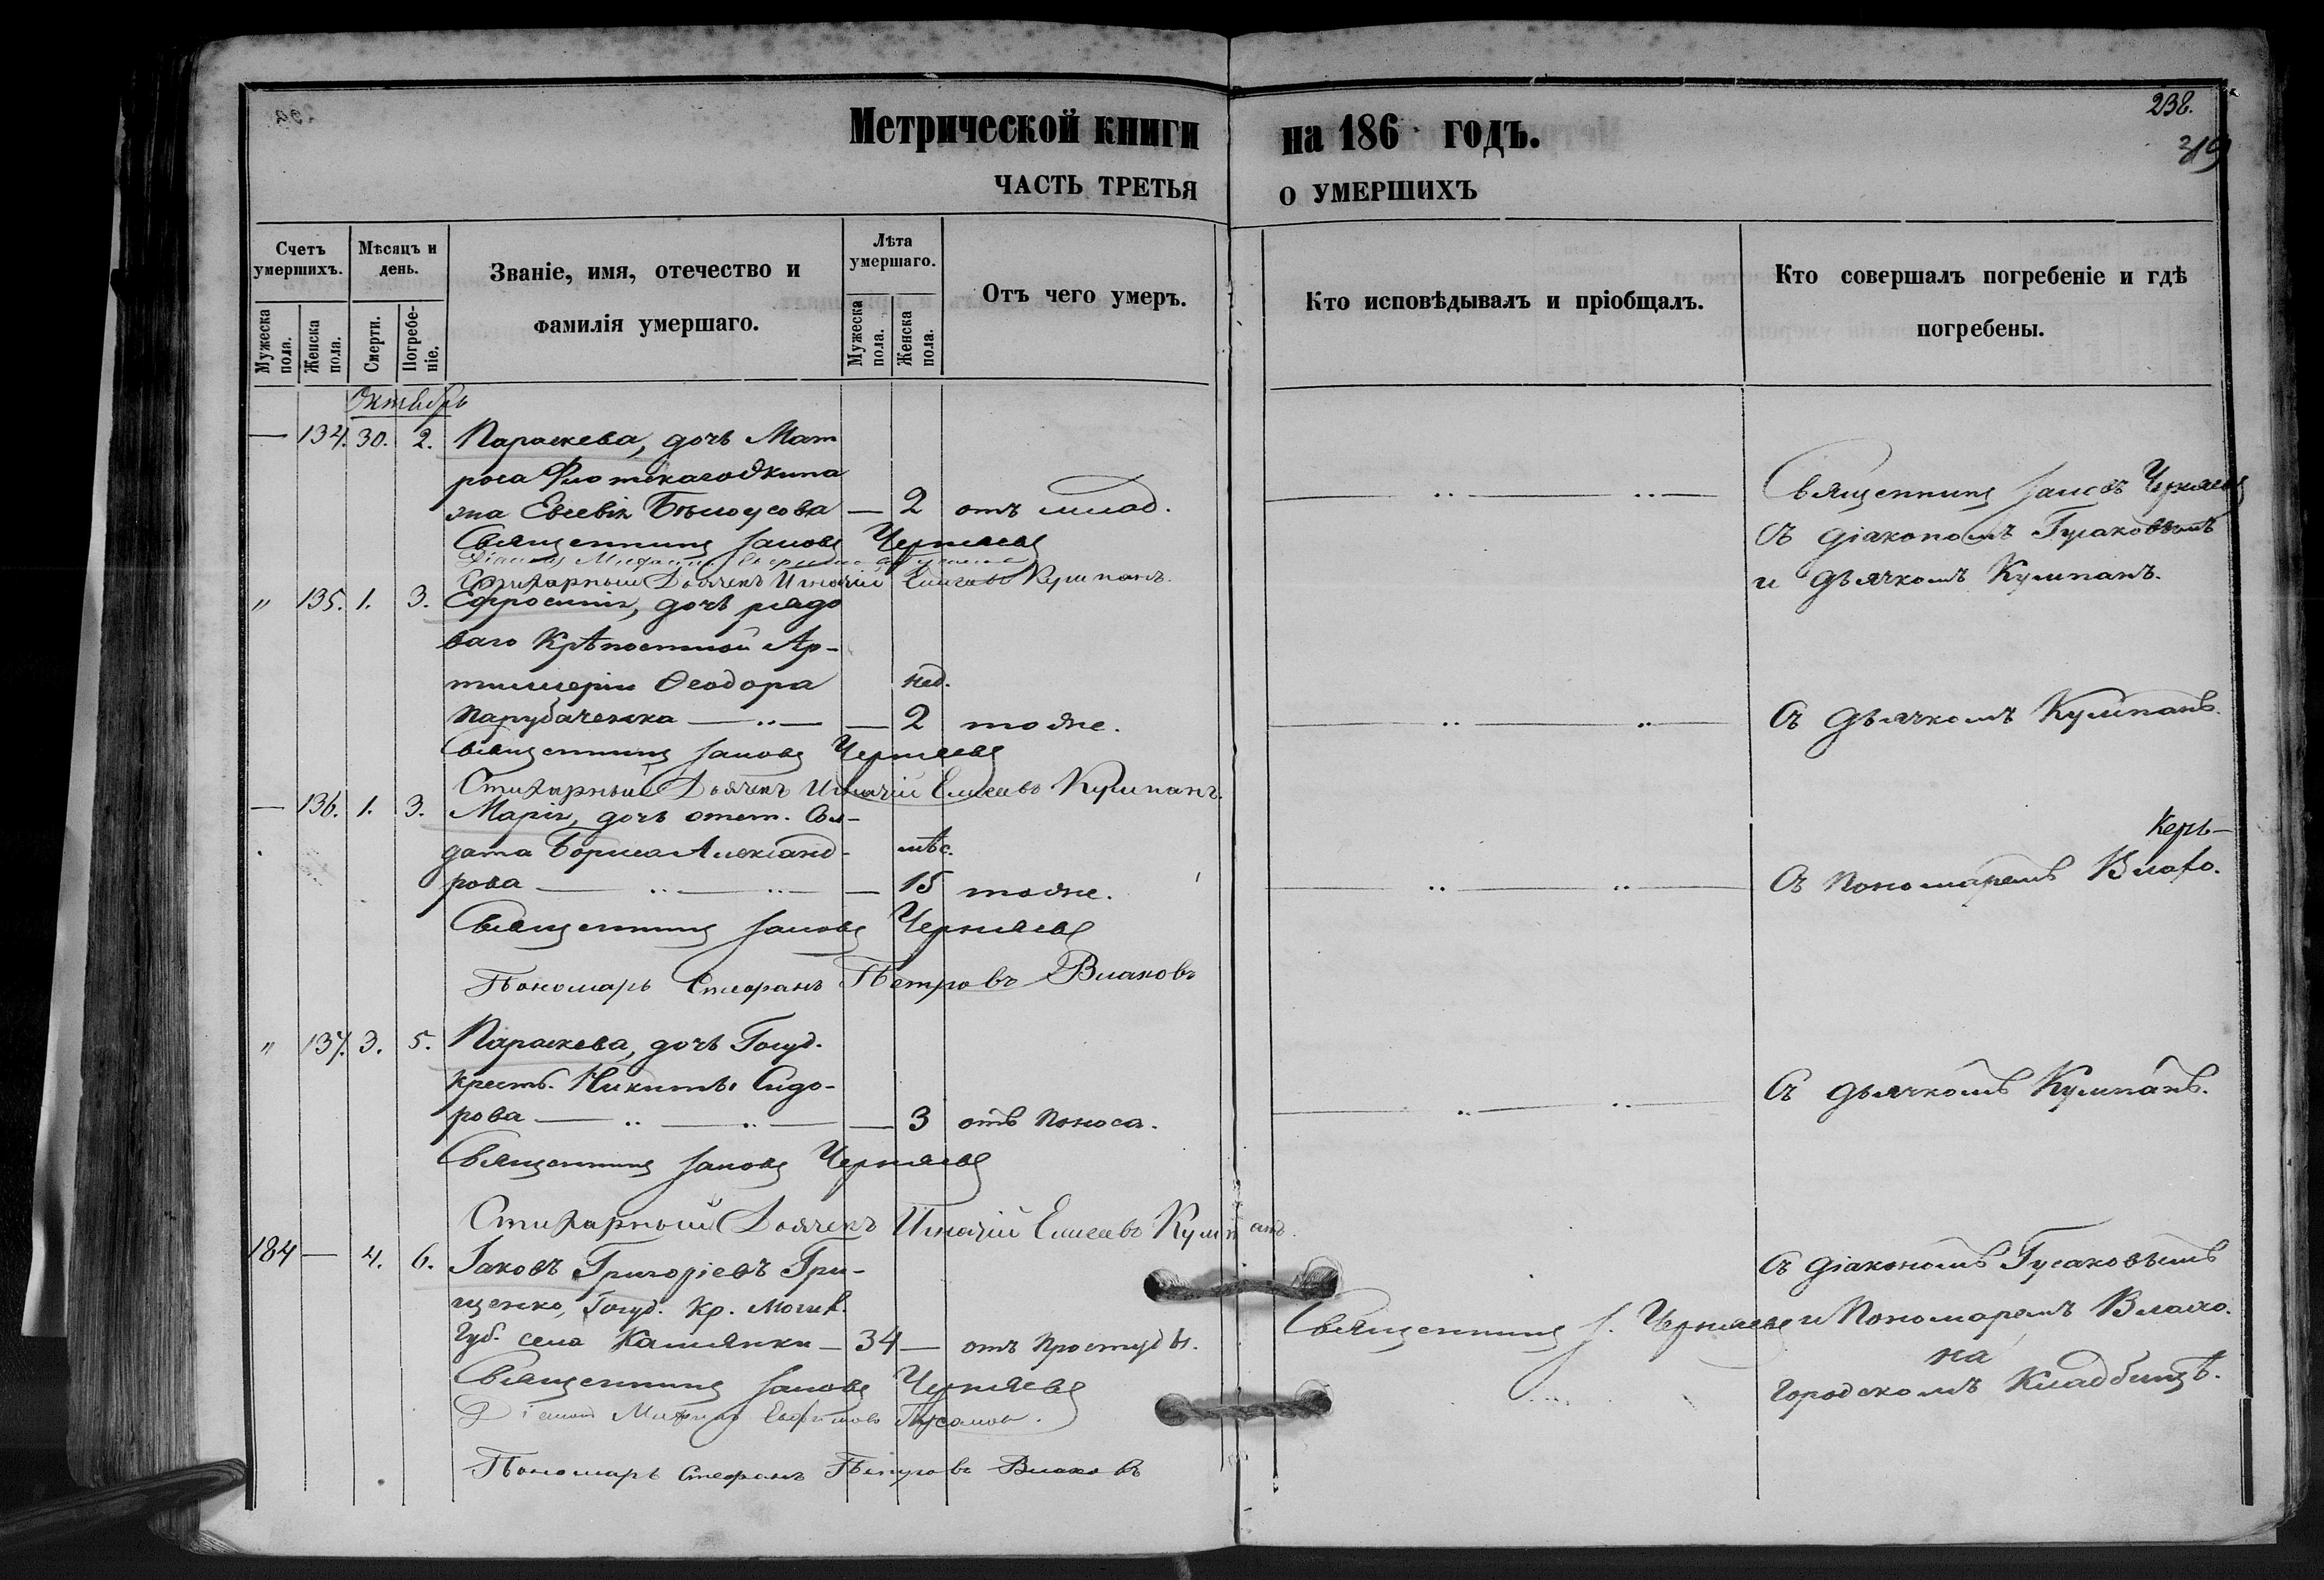 238.
319
Метрической книги на 186 годъ.
ЧАСТЬ ТРЕТЬЯ О УМЕРШИХЪ
Счетъ умершихъ.
Мужеска пола.
Женска пола.
Мѣсяцъ и день.
Смерти.
Погребе-
ніе.
Званіе, имя, отечество и
фамилія умершаго.
Лѣта умершаго.
Мужеска пола.
Женска пола.
Отъ чего умеръ.
Кто исповѣдывалъ и пріобщалъ.
Кто совершалъ погребеніе и гдѣ
погребены.
Октябрь
— 134. 30. 2. Параскева, дочь Мат
роса Флотскаго
Бѣлоусова — 2 отъ млад.
Священникъ Іаковъ Черняевъ
съ діакономъ Гусаковымъ
и дьячкомъ Кулипанъ.
Священникъ Іаковъ Черняевъ
Стихарный Дьячекъ Игнатій Елисеевъ Кулипанъ
" 135. 1. 3. Ефросинія, дочь рядо
ваго Крѣпостной Ар-
тиллеріи Ѳеодора нед.
Парубаченка — 2 тоже.
Съ дьячкомъ Кулипанъ.
Священникъ Іаковъ Черняевъ
Стихарный Дьячекъ Игнатій Елисеевъ Кулипанъ.
— 136. 1. 3. Марія, дочь отст. Сол-
дата Бориса Александ- мѣс.
рова — 15 тоже.
Съ Пономаремъ
Священникъ Іаковъ Черняевъ
Пономарь Стефанъ Петровъ Влаховъ
" 137. 3. 5. Параскева, дочь Госуд.
крестъ. Никиты Сидо-
рова — 3 отъ Поноса.
Съ дьячкомъ Кулипанъ.
Священникъ Іаковъ Черняевъ
Стихарный Дьячекъ Игнатій Елисеевъ Кулипанъ.
184 — 4. 6. Іаковъ Григоріевъ Гри-
щенко, Госуд. Кр. Могил.
Губ. села Камянки — 34 — отъ Простуды.
Священникъ І. Черняевъ
Съ діакономъ Гусаковымъ
и Пономаремъ Влахо.
на
городскомъ Кладбищѣ.
Священникъ Іаковъ Черняевъ
Гусаковъ.
Пономарь Стефанъ Петровъ Влаховъ